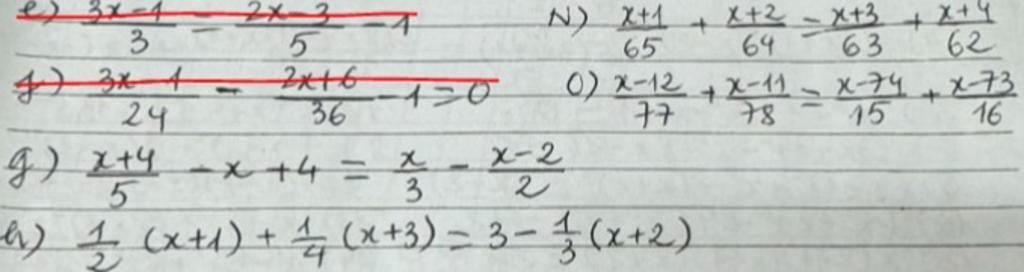 e) \frac{3x-1}{3} = \frac{2x-3}{5} - 1
N) \frac{x+1}{65} + \frac{x+2}{64} = \frac{x+3}{63} + \frac{x+4}{62}
f) \frac{3x-1}{24} - \frac{2x+6}{36} - 1 = 0
O) \frac{x-12}{77} + \frac{x-11}{78} = \frac{x-74}{15} + \frac{x-73}{16}
g) \frac{x+4}{5} - x + 4 = \frac{x}{3} - \frac{x-2}{2}
h) \frac{1}{2} (x+1) + \frac{1}{4} (x+3) = 3 - \frac{1}{3} (x+2)